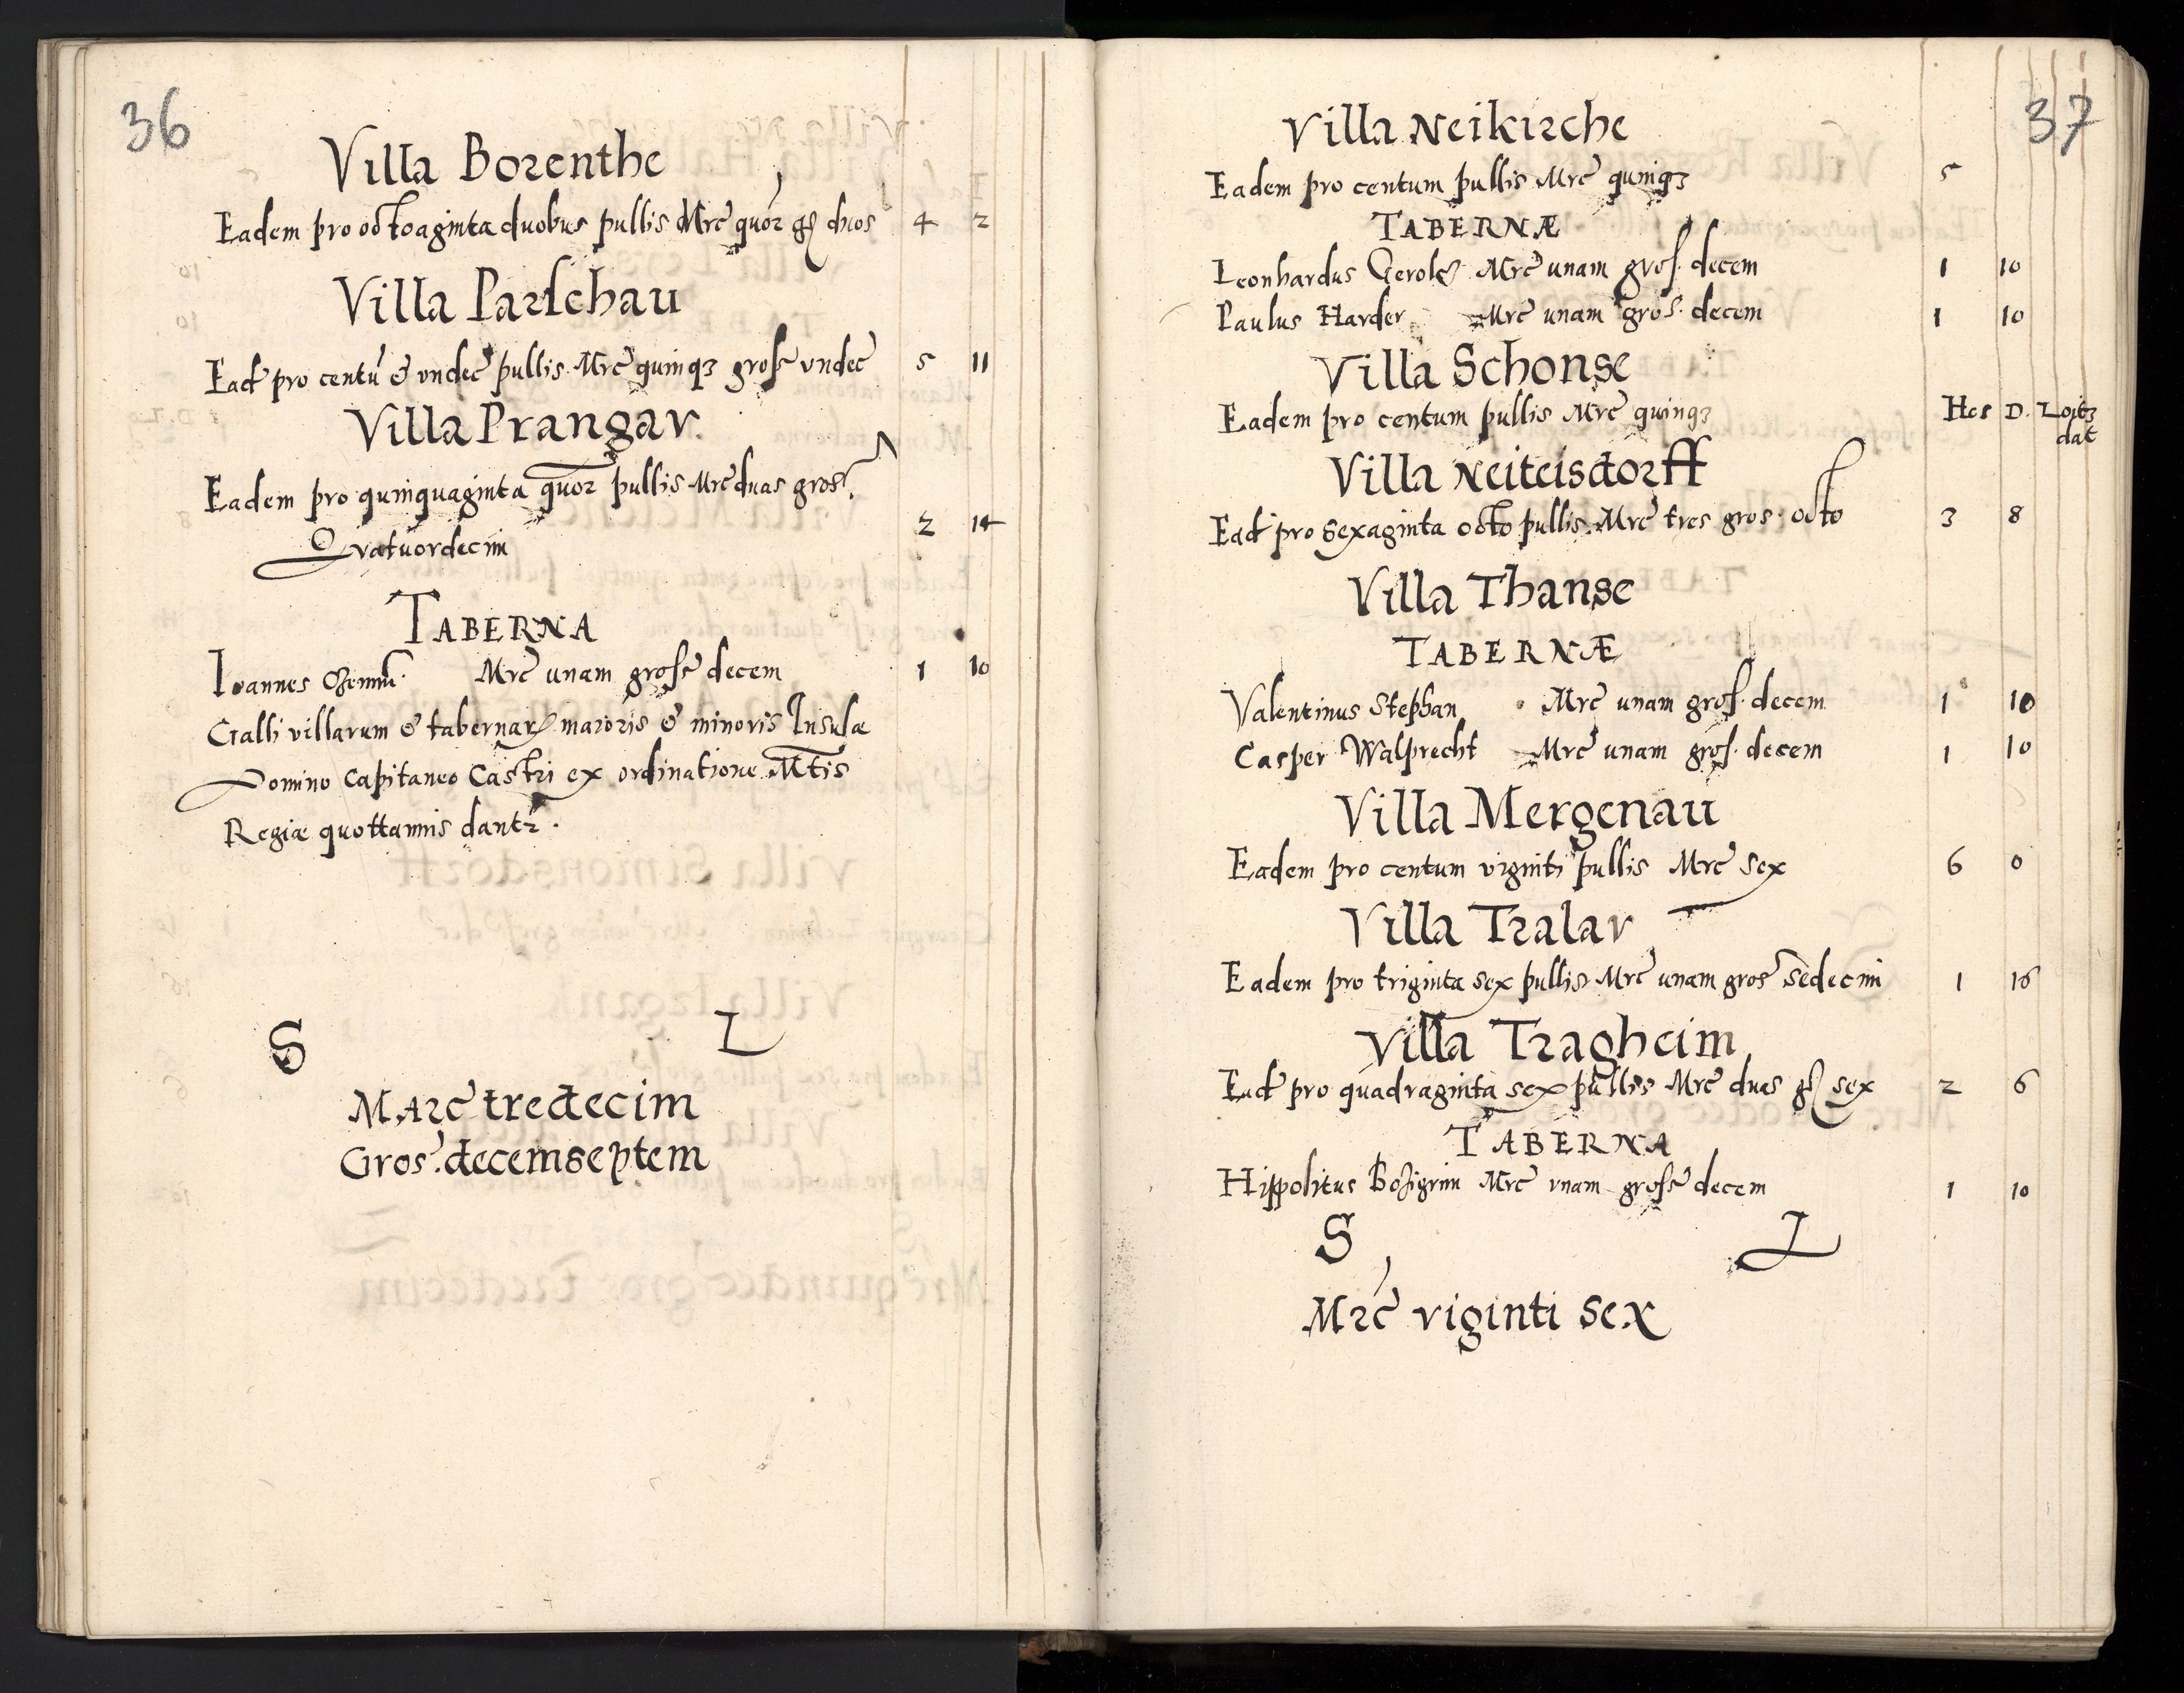 36
Villa Borenthe
Eadem pro octoaginta duobus pullis Mrc quor gs duos 4 2
Villa Parschau
Ead pro centu & undec pullis Mrc quinqz gross undec 5 11
Villa Prangav.
Eadem pro quinquaginta quor pullis Mrc duas gros.
Qvatuordecim 2 14
TABERNA
Ioannes Mrc unam gross decem 1 10
Galli villarum & tabernar maioris & minoris Insulæ
Domino Capitaneo Castri ex ordinatione Mtis
Regiæ quottannis dantr.
S L
Marc tredecim
Gros. decemseptem
37
Villa Neikirche
Eadem pro centum pullis Mrc quinqz 5
TABERNÆ
Leonhardus Mrc unam gros. decem 1 10
Paulus Harder Mrc unam gros. decem 1 10
Villa Schonse
Eadem pro centum pullis Mrc quinqz Hos D. Loitz
dat
Villa Neiteisdorff
Ead pro sexaginta octo pullis Mrc tres gros. octo 3 8
Villa Thanse
TABERNÆ
Valentinus Stephan Mrc unam gros. decem 1 10
Casper Walprecht Mrc unam gros. decem 1 10
Villa Mergenau
Eadem pro centum viginti pullis Mrc sex 6 0
Villa Tralav
Eadem pro triginta sex pullis Mrc unam gros sedecim 1 16
Villa Tragheim
Ead pro quadraginta sex pullis Mrc duas gs sex 2 6
TABERNA
Hippolitus Mrc unam gross decem 1 10
S L
Mrc viginti sex